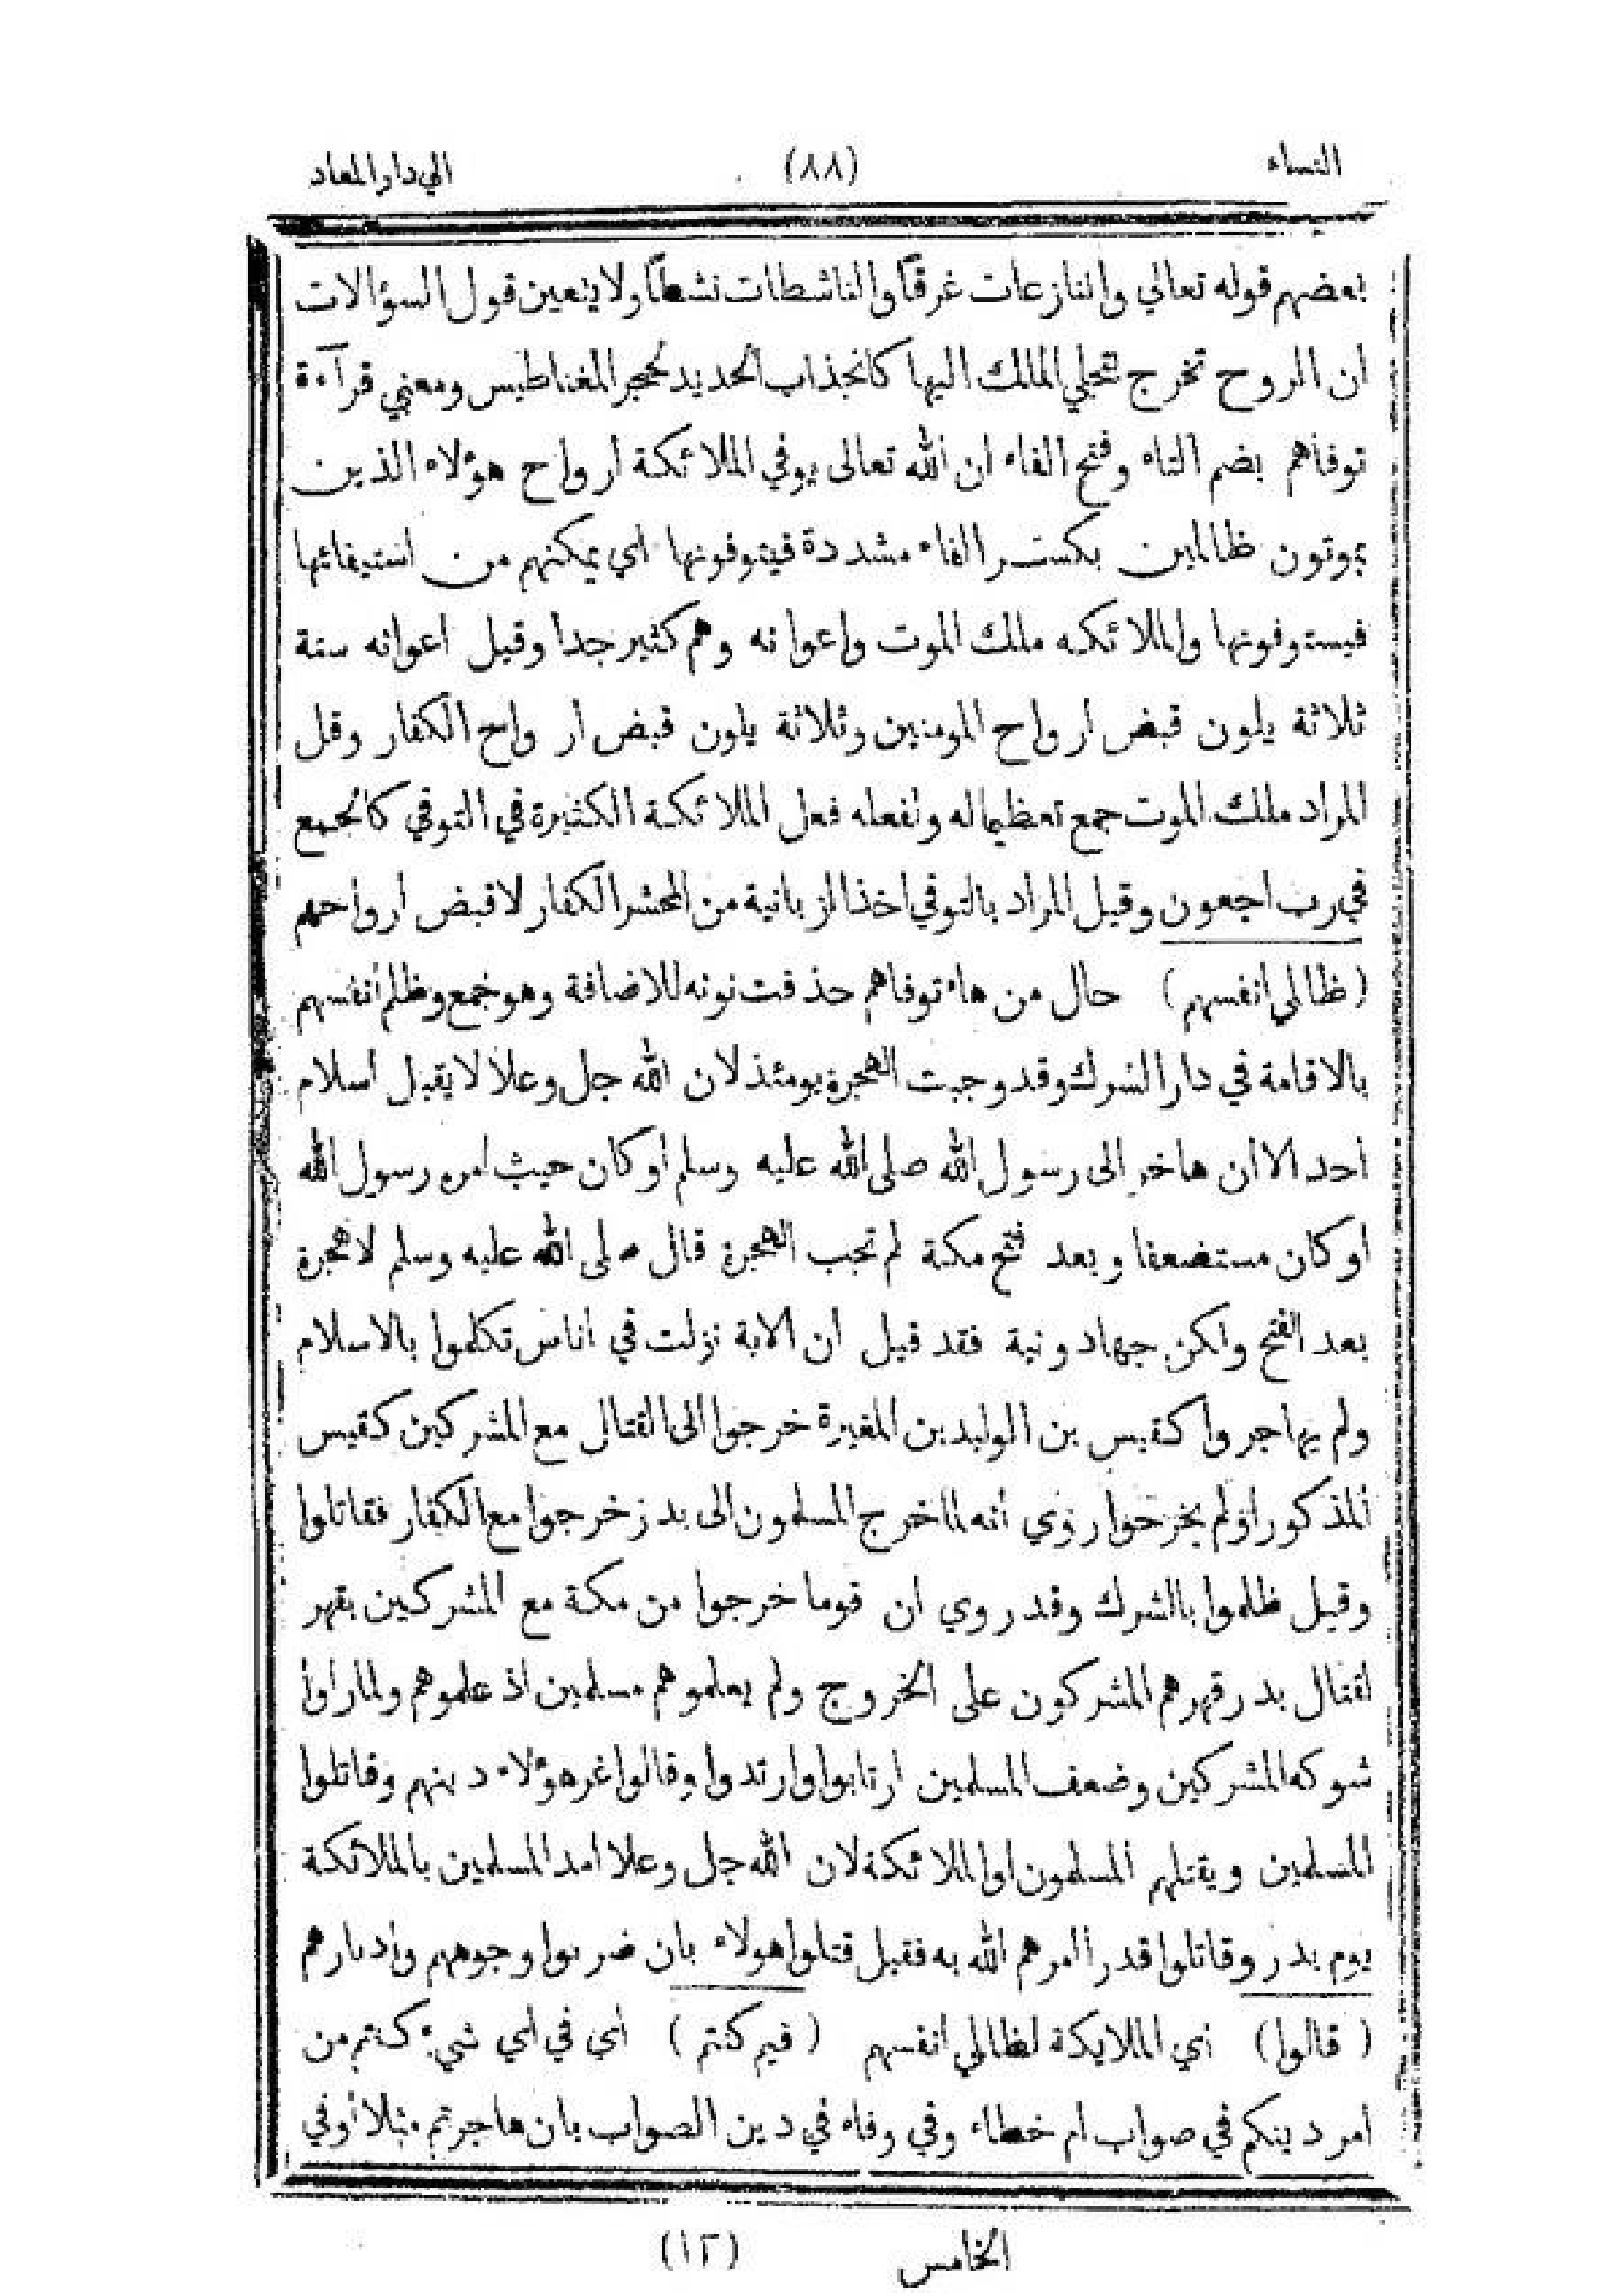 النساء (٨٨) الي دار المعاد
بعضهم قوله تعالي والنازعات غرقا والناشطات نشطا ولا يتعين قول السؤالات
ان الروح تخرج لتجلي المالك اليها كانجذاب الحديد لحجر المغناطيس ومعني قرآءة
توفاهم بضم التاء وفتح الفاء ان الله تعالى يوفي الملائكة أرواح هؤلاء الذين
يموتون ظالمين بكسر الفاء مشددة فيتوفونها اي يمكنهم من استيفائها
فيستوفونها والملائكه ملك الموت واعوانه وهم كثير جدا وقيل اعوانه ستة
ثلاثة يلون قبض أرواح المومنين وثلاثة يلون قبض أرواح الكفار وقل
المراد ملك الموت جمع تعظيما له ولفعله فعل الملائكة الكثيرة في التوفي كالجمع
في رب ارجعون وقيل المراد بالتوفي اخذ الزبانية من المحشر الكفار لا قبض أرواحهم
(ظالمي انفسهم) حال من هاء توفاهم حذفت نونه للاضافة وهو جمع وظلم أنفسهم
بالاقامة في دار الشرك وقد وجبت الهجرة يومئذ لان الله جل وعلا لا يقبل اسلام
احد الا ان هاجر الى رسول الله صلى الله عليه وسلم أو كان حيث امره رسول الله
او كان مستضعفا وبعد فتح مكة لم تجب الهجرة قال صلى الله عليه وسلم لا هجرة
بعد الفتح ولكن جهاد ونية فقد قيل ان الاية نزلت في اناس تكلموا بالاسلام
ولم يهاجروا كقيس بن الوليد بن المغيرة خرجوا الى القتال مع المشركين كقيس
المذكور اولم يخرجوا روي أنه لما خرج المسلمون الى بدر خرجوا مع الكفار فقاتلوا
وقيل ظلموا بالشرك وقد روي ان قوما خرجوا من مكة مع المشركين بقهر
لقتال بدر قهرهم المشركون على الخروج ولم يعلموهم مسلمين اذ علموهم ولما راوا
شوكه المشركين وضعف المسلمين ارتابوا وارتدوا وقالوا غر هؤلاء دينهم وقاتلوا
المسلمين ويقتلهم المسلمون او الملائكة لان الله جل وعلا امد المسلمين بالملائكة
يوم بدر وقاتلوا قدر ما امرهم الله به فقيل قتلوا هولاء بان ضربوا وجوههم وادبارهم
(قالوا) أي الملايكة لظالمي انفسهم (فيم كنتم) أي في أي شيء كنتم من
أمر دينكم في صواب ام خطاء وفي وفاء في دين الصواب بان هاجرتم مثلا أو في
الخامس (١٢)